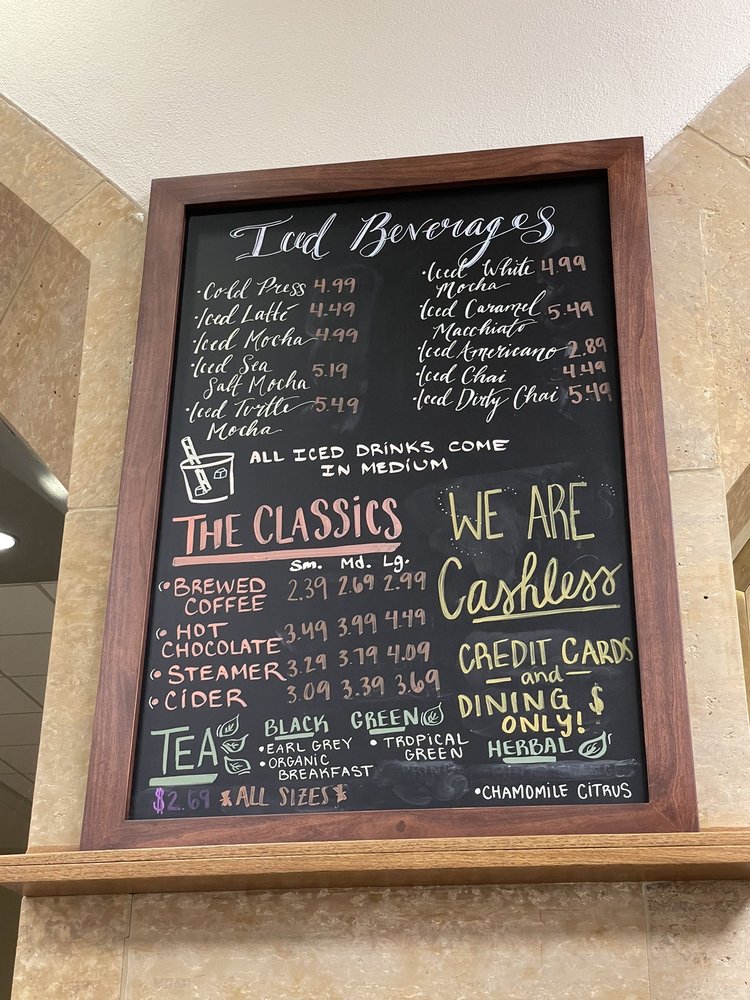 Iced Beverages
• Cold Press 4.99
• Iced Latté 4.49
• Iced Mocha 4.99
• Iced Sea
Salt Mocha 5.19
• Iced Turtle 5.49
Mocha
• Iced White 4.99
Mocha
Iced Caramel 5.49
Macchiato
Iced Americano 2.89
• Iced Chai 4.49
• Iced Dirty Chai 5.49
ALL ICED DRINKS COME
IN MEDIUM
THE CLASSICS
Sm. Md. Lg.
• BREWED
COFFEE 2.39 2.69 2.99
• HOT
CHOCOLATE 3.49 3.99 4.49
• STEAMER 3.29 3.79 4.09
• CIDER 3.09 3.39 3.69
WE ARE
Cashless
CREDIT CARDS
and
DINING $
ONLY!
TEA
$2.69 *ALL SIZES*
BLACK
• EARL GREY
• ORGANIC
BREAKFAST
GREEN
• TROPICAL
GREEN
HERBAL
• CHAMOMILE CITRUS